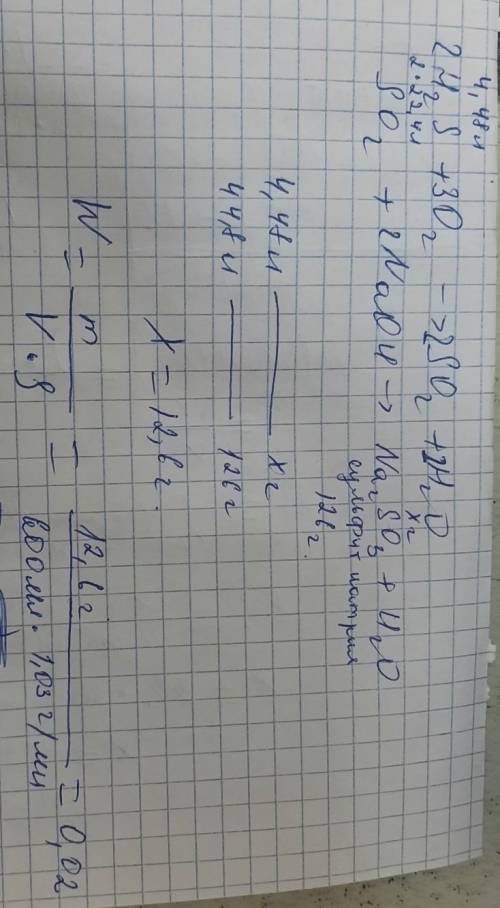 4,48 л
2H₂S + 3O₂ → 2SO₂ + 2H₂O
2·22,4л
x г
SO₂ + 2NaOH → Na₂SO₃ + H₂O
сульфит натрия
126 г.
4,48 л — x г
44,8 л — 126 г
X = 12,6 г.
W = m / V·ρ = 12,6 г / 600 мл · 1,03 г/мл = 0,02